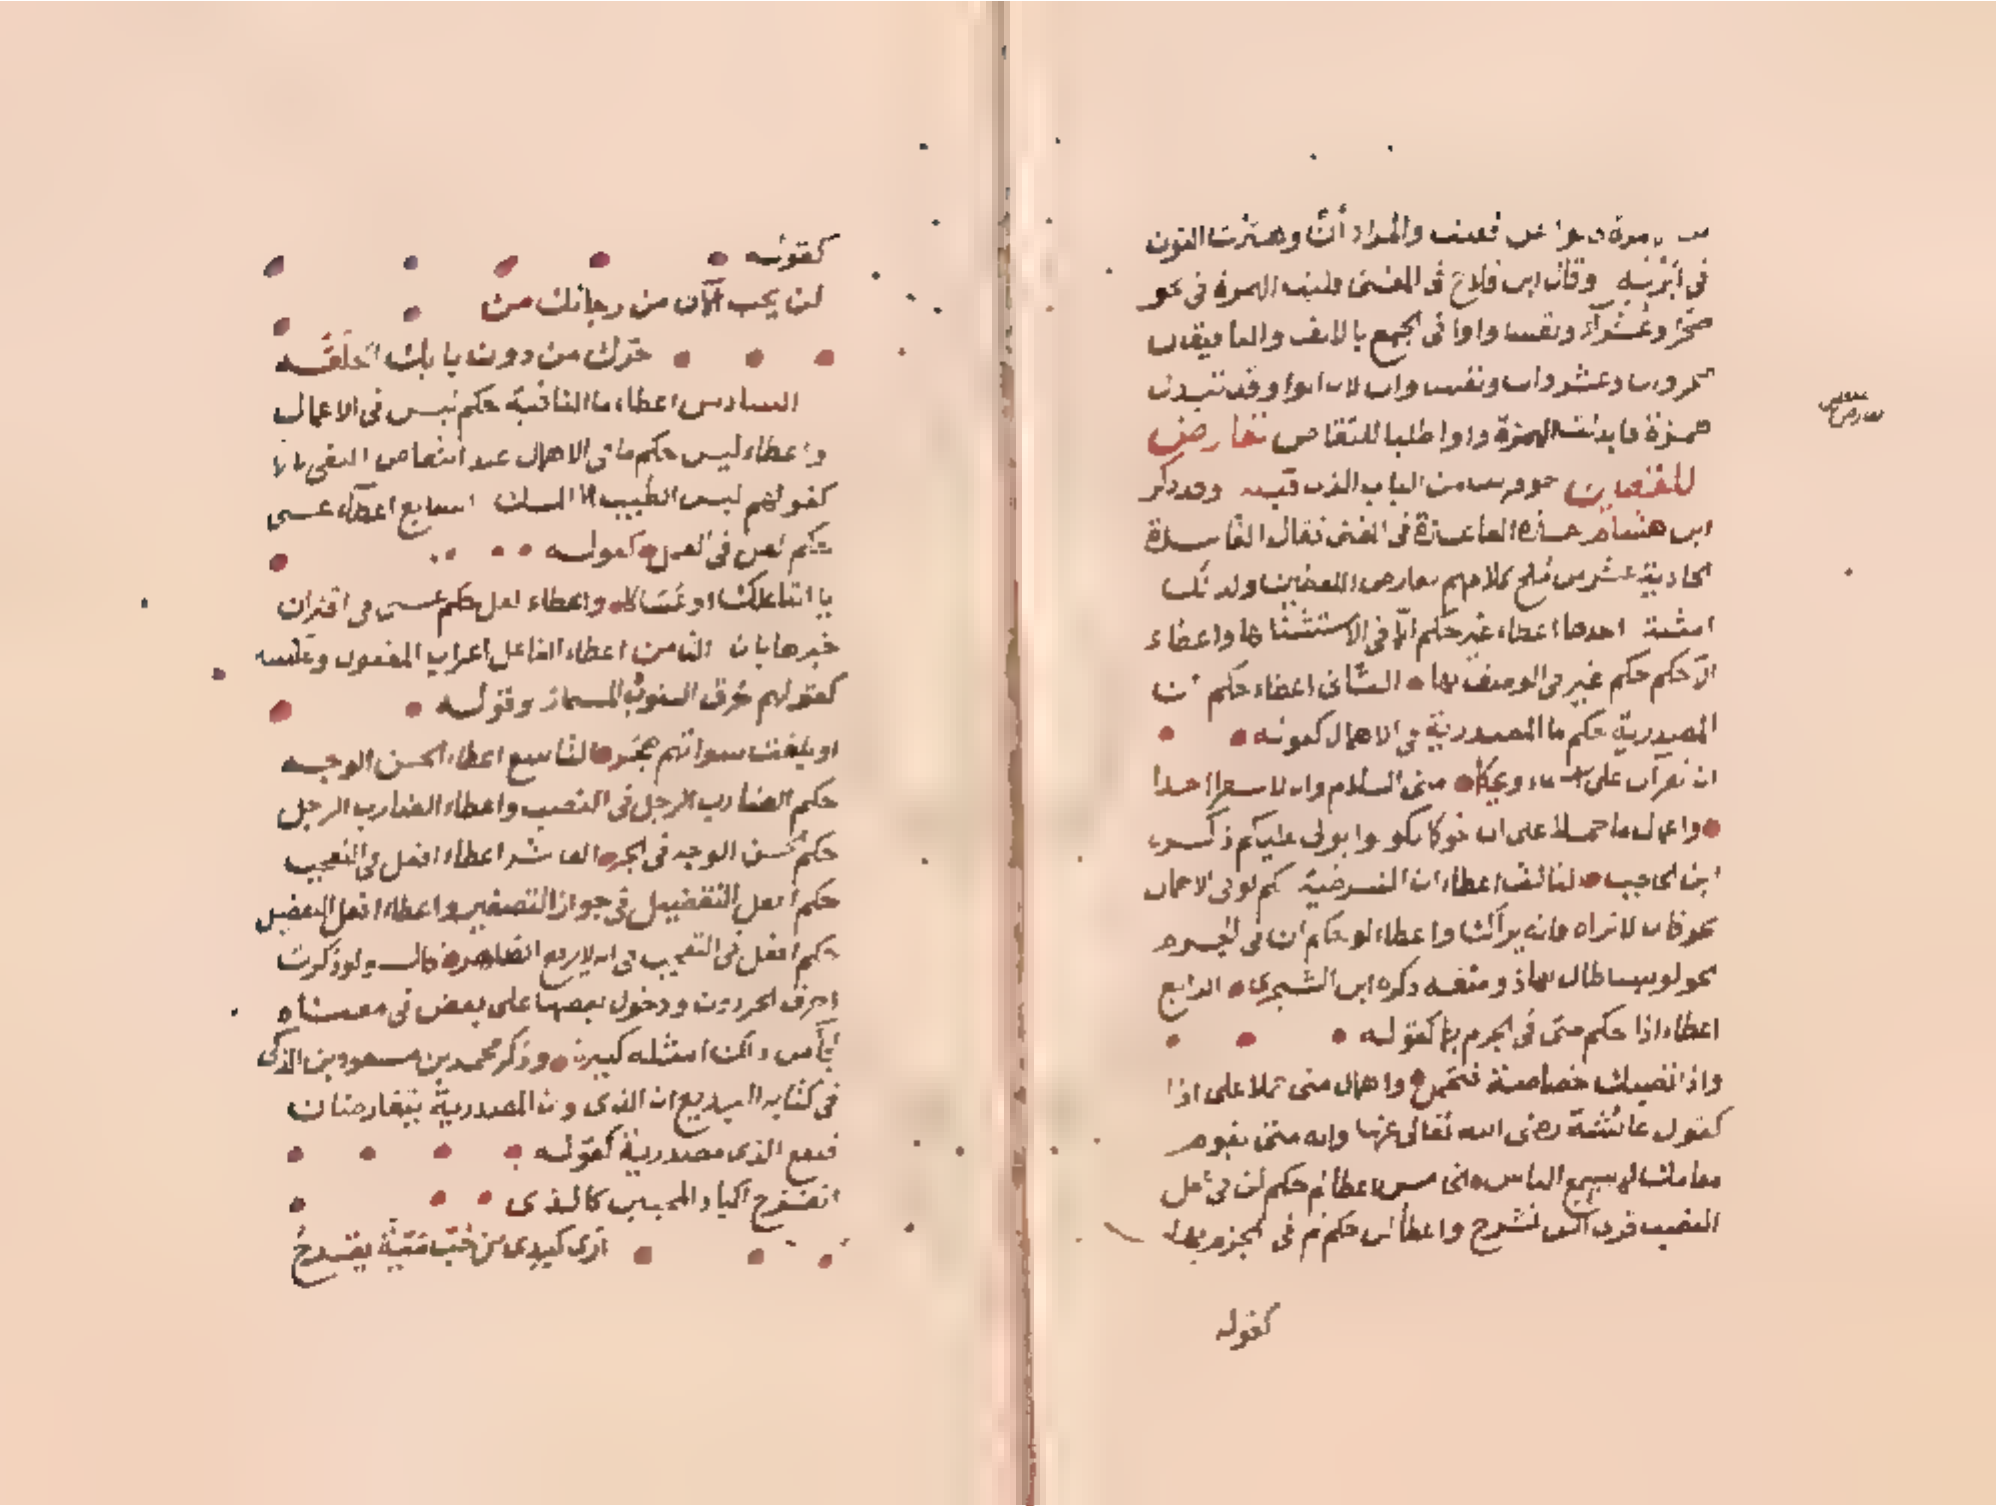 همزة فابدلت الهمزة واوا طلبا للتقاص تقارض
اللفظين
ابن هشام هذه القاعدة في المغنى فقال القاعدة
الحادية عشر من ملح كلامهم تقارض اللفظين ولذلك
امثلة احدها اعطاء غير حكم الا في الاستثنا بها واعطاء
الا حكم حكم غير في الوصف بها الثانى اعطاء حكم ان
المصدرية حكم ما المصدرية في الاهمال كقوله
ان تقرآن على اسماء ويحكما منى السلام وان لا تشعرا احدا
واعمال ما حملا على ان نحو كما تكونوا يولى عليكم ذكره
ابن الحاجب الثالث اعطاء ان الشرطية حكم لو فى الاهمال
نحو فان لا تراه فانه يراك واعطاء لو حكم ان فى الجزم
ذكره ابن الشجرى الرابع
اعطاء اذا حكم متى فى الجزم بها كقوله
واذا تصبك خصاصة فتحمل واهمال متى حملا على اذا
كقول عائشة رضى الله تعالى عنها وانه متى يقوم
مقامك لا يسمع الناس الخامس اعطاء لم حكم لن فى عمل
النصب قرئ الم نشرح واعطاء لن حكم لم فى الجزم بها
كقوله
كقوله
لن يخب الآن من رجائك من
حرك من دون بابك الحلقه
السادس اعطاء ما النافية حكم ليس فى الاعمال
واعطاء ليس حكم ما فى الاهمال عند انتقاض النفى بالا
كقولهم ليس الطيب الا المسك السابع اعطاء عسى
حكم لعل فى العمل كقوله
يا ابتا علك او عساكا واعطاء لعل حكم عسى فى اقتران
خبرها بان الثامن اعطاء الفاعل اعراب المفعول وعكسه
كقولهم خرق الثوب المسمار وقوله
او بلغت سوآتهم هجر التاسع اعطاء الحسن الوجه
حكم الضارب الرجل فى النصب واعطاء الضارب الرجل
حكم الحسن الوجه فى الجر العاشر اعطاء افعل فى التعجب
حكم افعل التفضيل فى جواز التصغير واعطاء افعل التفضيل
حكم افعل فى التعجب فى انه لا يرفع الظاهر قال ولو ذكرت
احرف الجر ودخول بعضها على بعض فى معناه
لجاء من ذلك امثلة كثيرة وذكر محمد بن مسعود بن الذكى
فى كتابه البديع ان الذى وان المصدرية يتقارضان
فتقع الذى مصدرية كقوله
اتقرح اكباد المحبين كالذى
ارى كبدى من حب مية يقرح